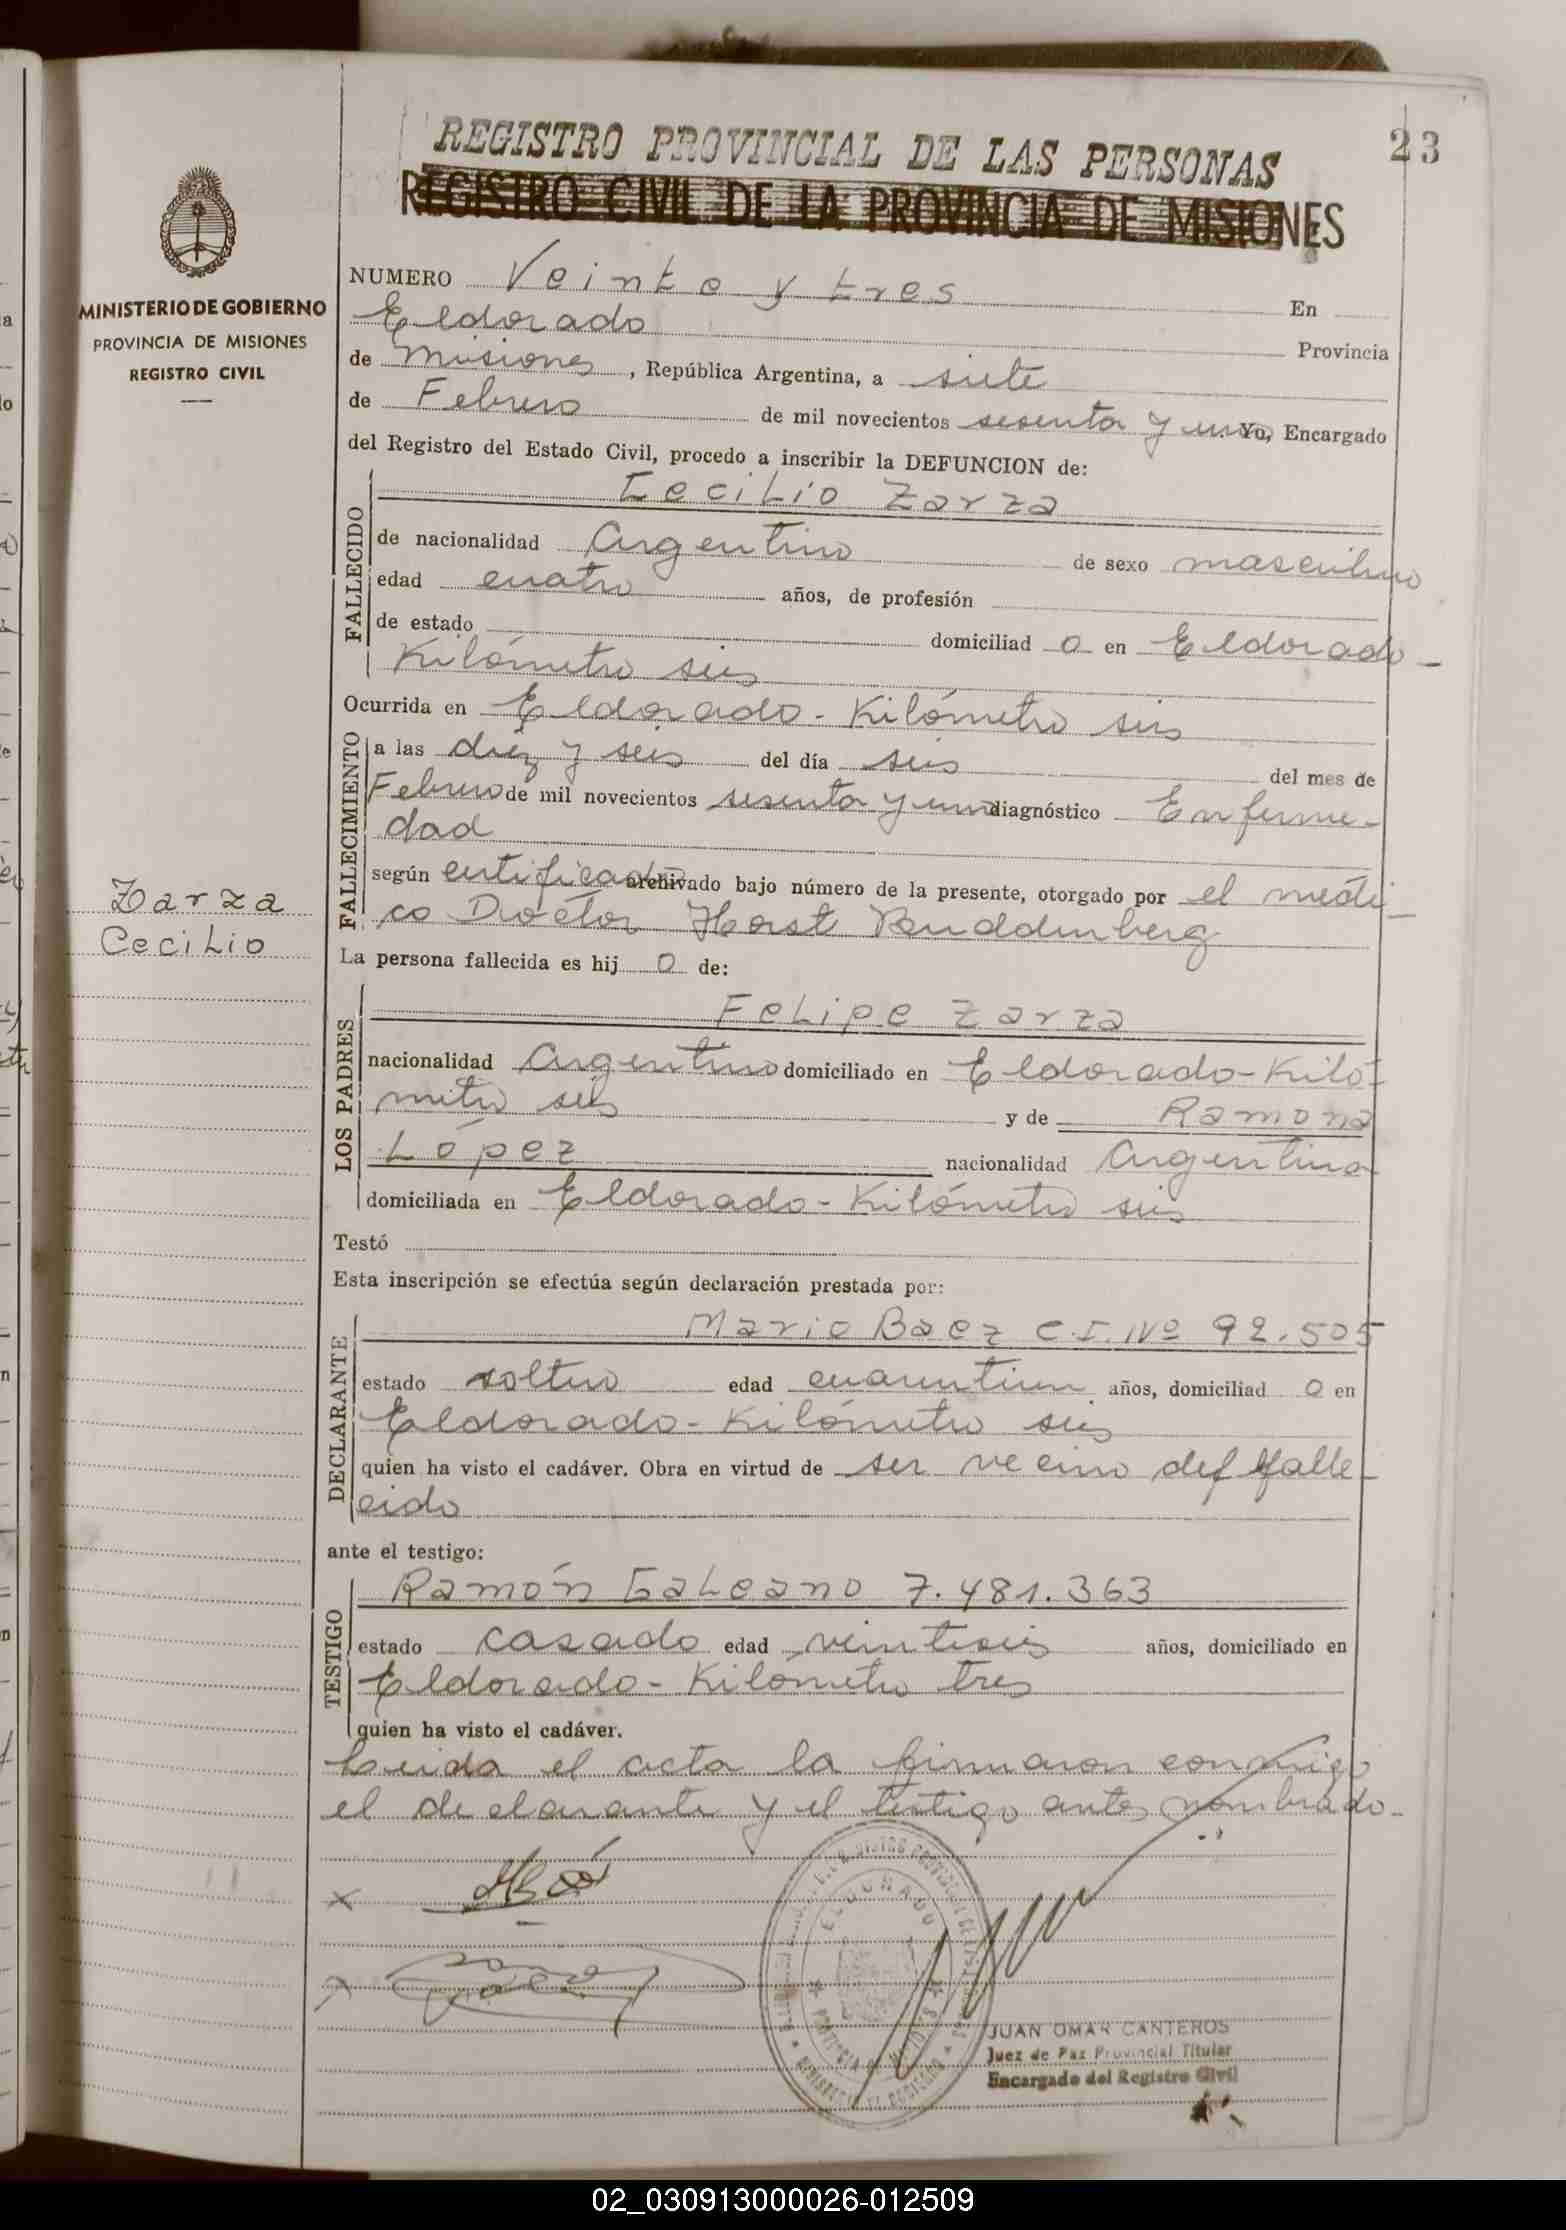 23
REGISTRO PROVINCIAL DE LAS PERSONAS
REGISTRO CIVIL DE LA PROVINCIA DE MISIONES
MINISTERIO DE GOBIERNO
PROVINCIA DE MISIONES
REGISTRO CIVIL
NUMERO Veinte y tres En
Eldorado Provincia
de Misiones, República Argentina, a siete
de Febrero de mil novecientos sesenta y uno Yo, Encargado
del Registro del Estado Civil, procedo a inscribir la DEFUNCION de:
FALLECIDO
Cecilio Zarza
de nacionalidad Argentino de sexo masculino
edad cuatro años, de profesión
de estado domiciliad o en Eldorado-
Kilómetro seis
Ocurrida en Eldorado - Kilómetro seis
FALLECIMIENTO
a las diez y seis del día seis del mes de
Febrero de mil novecientos sesenta y uno diagnóstico Enferme-
dad
según certificado archivado bajo número de la presente, otorgado por el médi-
co Doctor Horst
Zarza
Cecilio
La persona fallecida es hij o de:
LOS PADRES
Felipe Zarza
nacionalidad Argentino domiciliado en Eldorado-Kiló-
metro seis y de Ramona
López nacionalidad Argentina
domiciliada en Eldorado - Kilómetro seis
Testó
Esta inscripción se efectúa según declaración prestada por:
DECLARANTE
Mario Baez C.I. Nº 92.505
estado soltero edad años, domiciliad o en
Eldorado - Kilómetro seis
quien ha visto el cadáver. Obra en virtud de ser vecino del falle-
cido
ante el testigo:
TESTIGO
Ramón Galeano 7.481.363
estado casado edad veintiseis años, domiciliado en
Eldorado - Kilómetro tres
quien ha visto el cadáver.
Leida el acta la firmaron conmigo
el declarante y el testigo antes nombrado-
x
x
ELDORADO
JUAN OMAR CANTEROS
Juez de Paz Provincial Titular
Encargado del Registro Civil
02_030913000026-012509